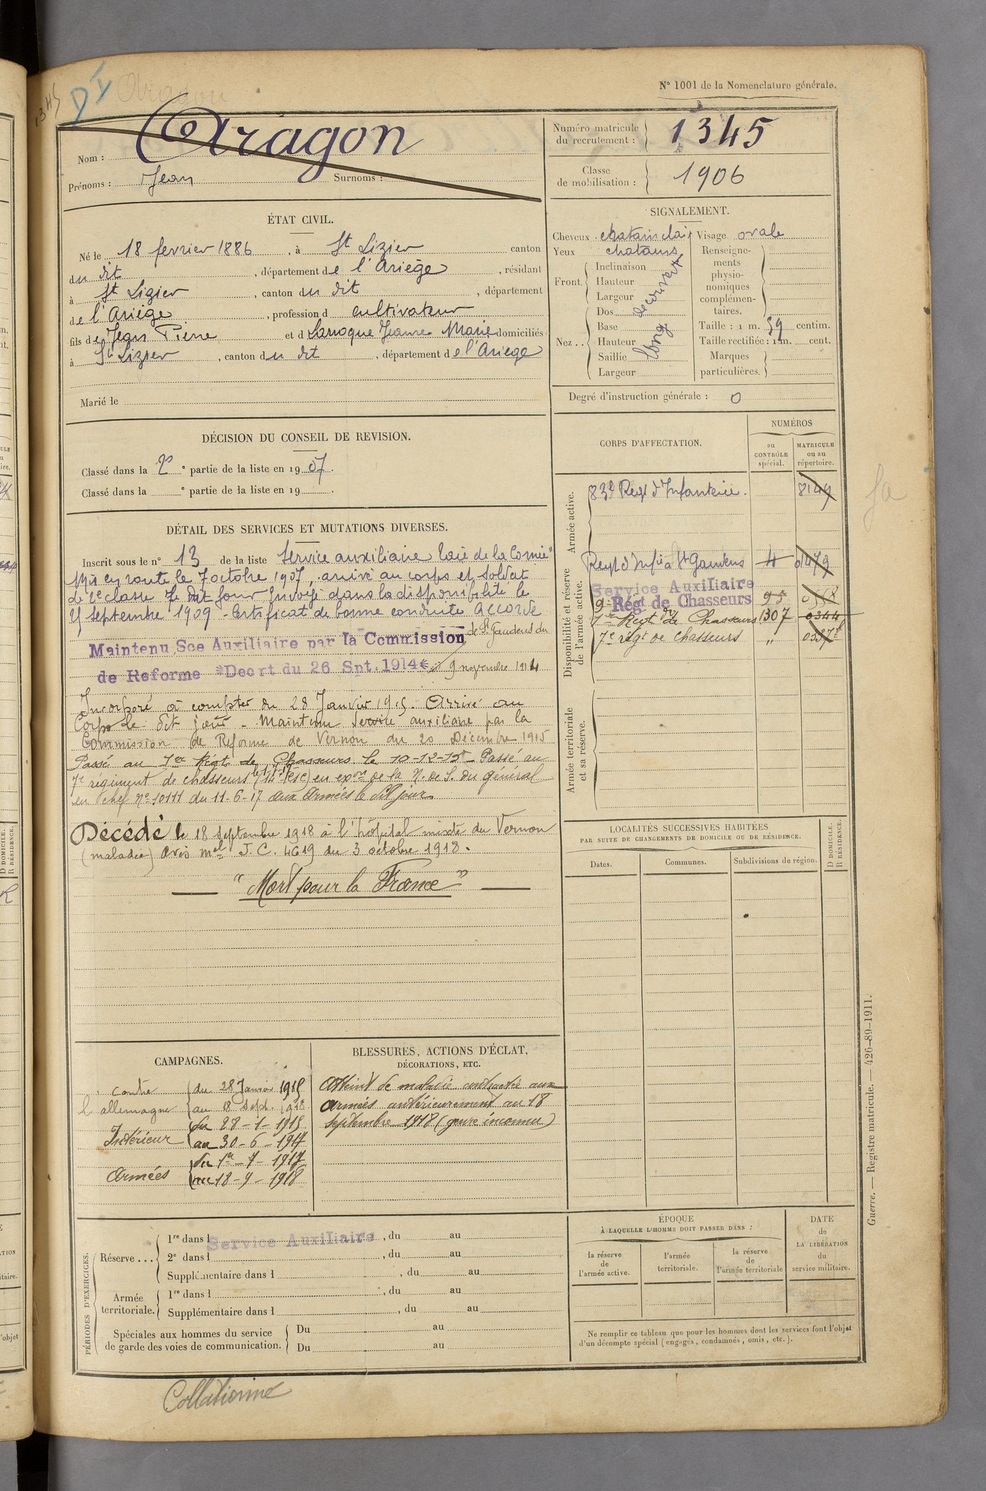 N° 1001 de la Nomenclature générale.
1345
Aragon
Nom : Aragon
Prénoms : Jean Surnoms :
Numéro matricule du recrutement : 1345
Classe de mobilisation : 1906
ÉTAT CIVIL.
Né le 18 fevrier 1886, à St Lizier canton
du dit, département de l'Ariège, résidant
à St Lizier, canton du dit, département
de l'Ariège, profession d cultivateur
fils de Jean Pierre et d Laroque Jeanne Marie domiciliés
à St Lizier, canton du dit, département de l'Ariege
Marié le
SIGNALEMENT.
Cheveux chatain clair Visage ovale
Yeux chatains
Front. Inclinaison
Hauteur
Largeur
découvert
Nez.. Dos
Base
Hauteur
Saillie
Largeur
long
Renseignements physionomiques complémentaires.
Taille : 1 m. 59 centim.
Taille rectifiée : 1 m. cent.
Marques particulières.
Degré d'instruction générale : 0
DÉCISION DU CONSEIL DE REVISION.
Classé dans la 2e partie de la liste en 1907.
Classé dans la e partie de la liste en 19 .
DÉTAIL DES SERVICES ET MUTATIONS DIVERSES.
Inscrit sous le n° 13 de la liste Service auxiliaire
Mis en route le 7 octobre 1907, arrivé au corps et soldat
de 2e classe le dit jour Envoyé dans la disponibilité le
septembre 1909 - Certificat de bonne conduite Accordé
Maintenu Sce Auxiliaire par la Commission de St Gaudens du
de Reforme Decrt du 26 Spt. 1914 9 novembre 1914
Incorporé à compter du 28 Janvier 1915. Arrivé au
Corps le dit jour - Maintenu service auxiliaire par la
Commission de Reforme de Vernon du 20 Décembre 1915
Passé au 7e Régt de Chasseurs le 10-12-15 Passé au
7e régiment de chasseurs en exon de la N. de S. du général
en chef N° 10111 du 11-6-17 aux Armées le dit jour
Décédé le 18 Septembre 1918 à l'hôpital mixte du Vernon
(maladie) Avis mel J.C. 4619 du 3 octobre 1918.
"Mort pour la France"
CORPS D'AFFECTATION.
NUMÉROS
au CONTRÔLE spécial.
MATRICULE ou au répertoire.
Armée active.
83e Regt d'Infanterie. 8149
Disponibilité et réserve de l'armée active.
Regt d'Infie à St Gaudens 4 01479
Service Auxiliaire
9e Rég. de Chasseurs 95 0518
7e Regt de Chasseurs 1307 0344
7e régt de chasseurs "
Armée territoriale et sa réserve.
LOCALITÉS SUCCESSIVES HABITÉES
PAR SUITE DE CHANGEMENTS DE DOMICILE OU DE RÉSIDENCE.
Dates. Communes. Subdivisions de région.
D DOMICILE.
R RÉSIDENCE.
CAMPAGNES.
contre l'allemagne du 28 Janvier 1915
au 18 Sept. 1918
Intérieur du 28-1-1915
au 30-6-1917
Armées du 1er-7-1917
au 18-9-1918
BLESSURES, ACTIONS D'ÉCLAT,
DÉCORATIONS, ETC.
Atteint de maladie contractée aux
Armées antérieurement au 18
septembre 1918 (genre inconnu)
PÉRIODES D'EXERCICES.
Réserve... 1re dans l Service Auxiliaire, du au
2e dans l , du au
Supplémentaire dans l , du au
Armée territoriale. 1re dans l , du au
Supplémentaire dans l , du au
Spéciales aux hommes du service
de garde des voies de communication. Du au
Du au
ÉPOQUE
À LAQUELLE L'HOMME DOIT PASSER DANS :
la réserve de l'armée active.
l'armée territoriale.
la réserve de l'armée territoriale
DATE de LA LIBÉRATION du service militaire.
Ne remplir ce tableau que pour les hommes dont les services font l'objet
d'un décompte spécial (engagés, condamnés, omis, etc.).
Guerre. — Registre matricule. — 426-89-1911.
Collationné